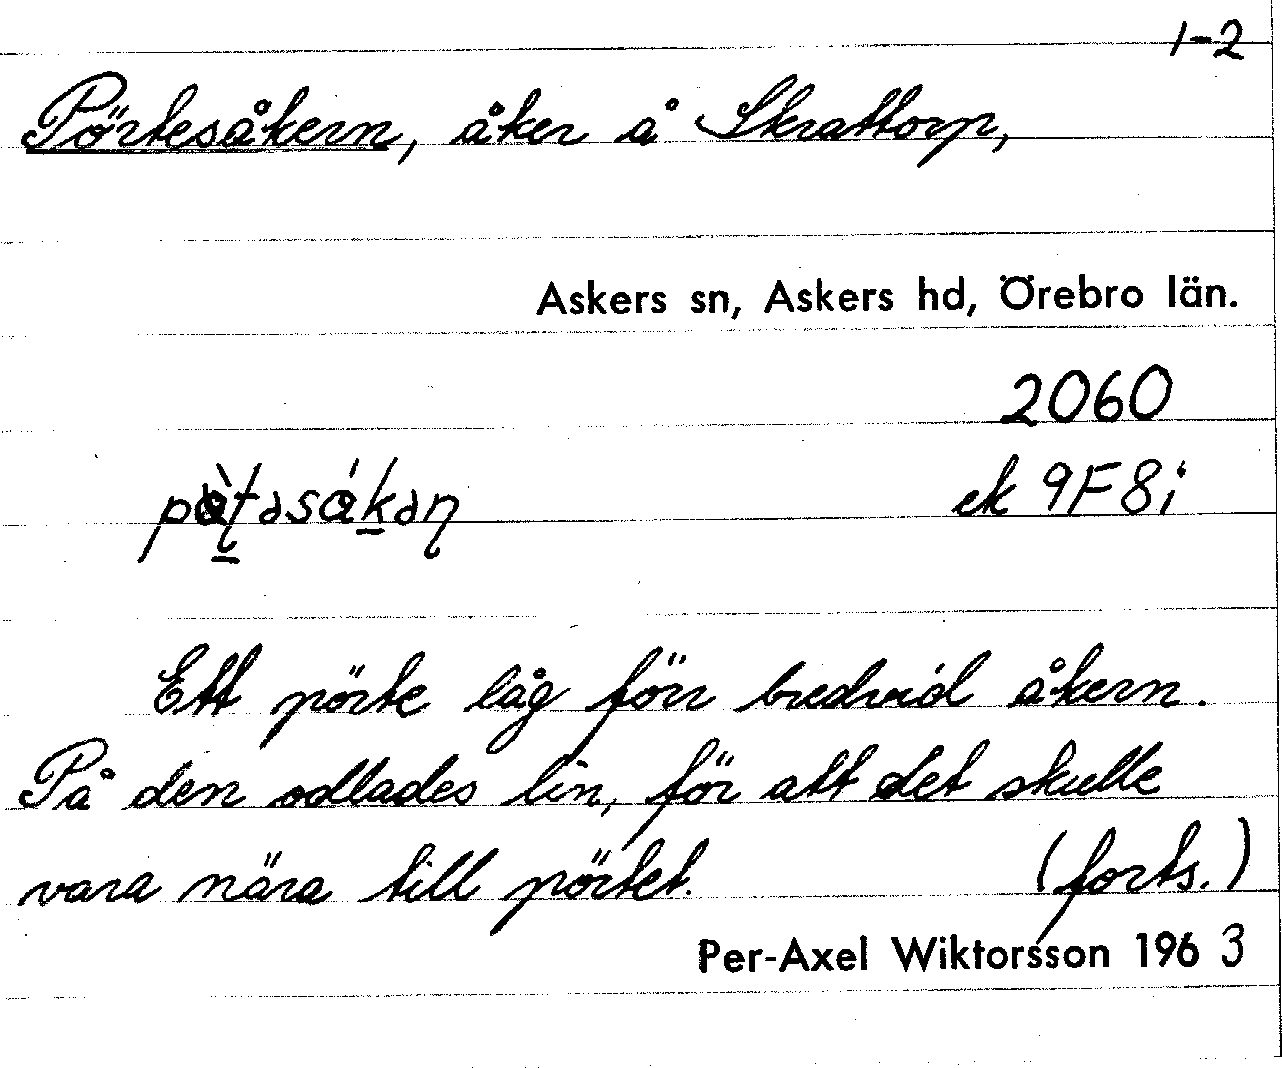 1-2
Pörtesåkern, åker å Skrattorp,
Askers sn, Askers hd, Örebro län.
2060
ek 9F8i
Ett pörte låg förr bredvid åkern.
På den odlades lin, för att det skulle
vara nära till pörtet. (forts.)
Per-Axel Wiktorsson 1963